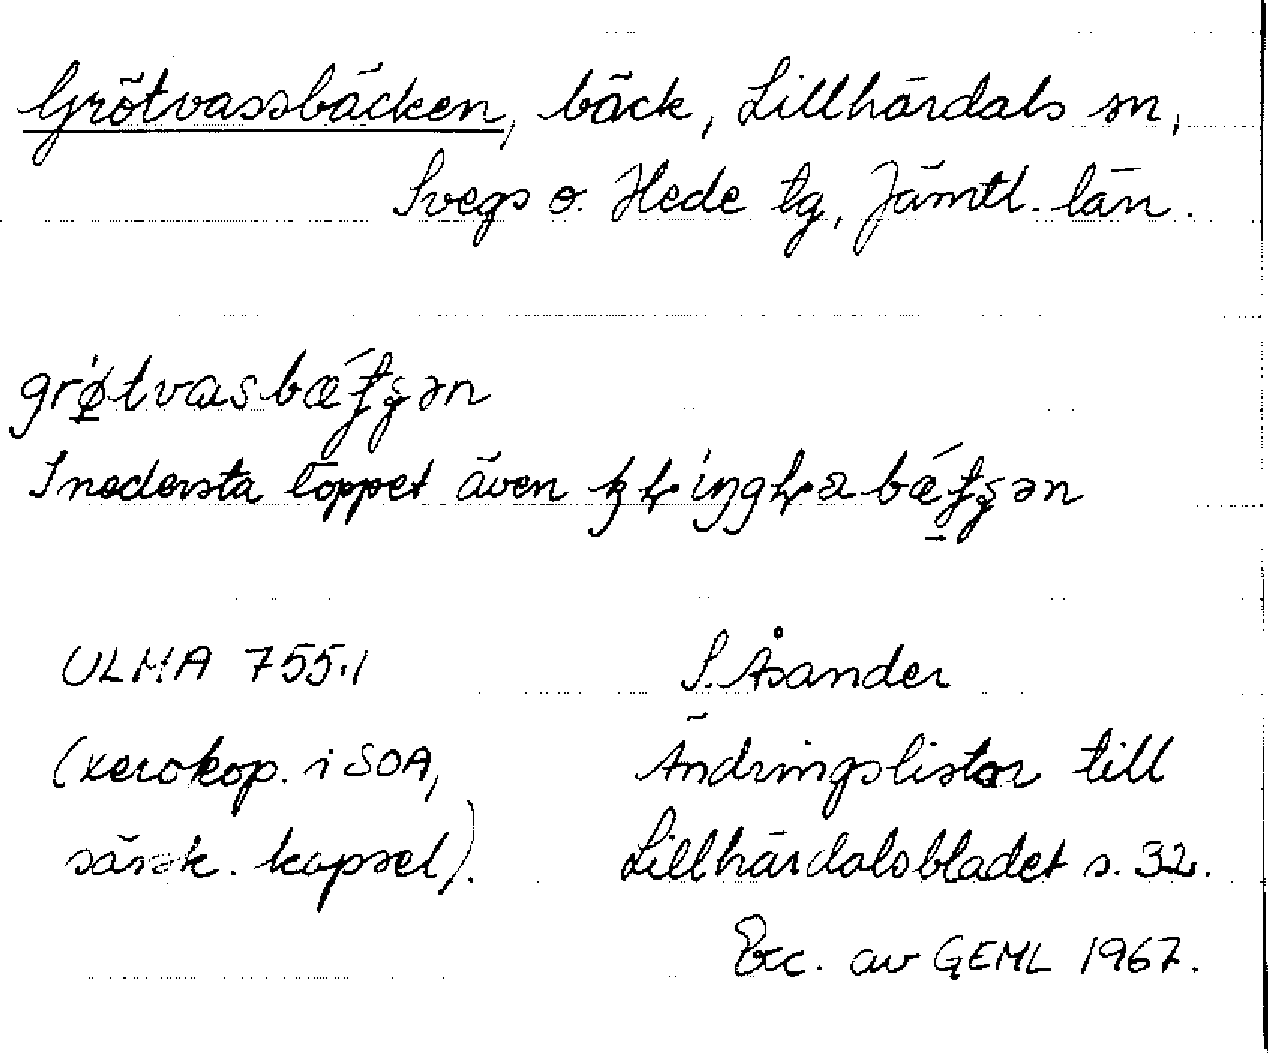 Grötvassbäcken, bäck, Lillhärdals sn,
Svegs o. Hede tg, Jämtl. län.
I nedersta loppet även
ULMA 755:1 S. Åsander
(xerokop. i SOA, Ändringslistor till
särsk. kapsel). Lillhärdalsbladet s. 32.
Exc. av GEML 1967.